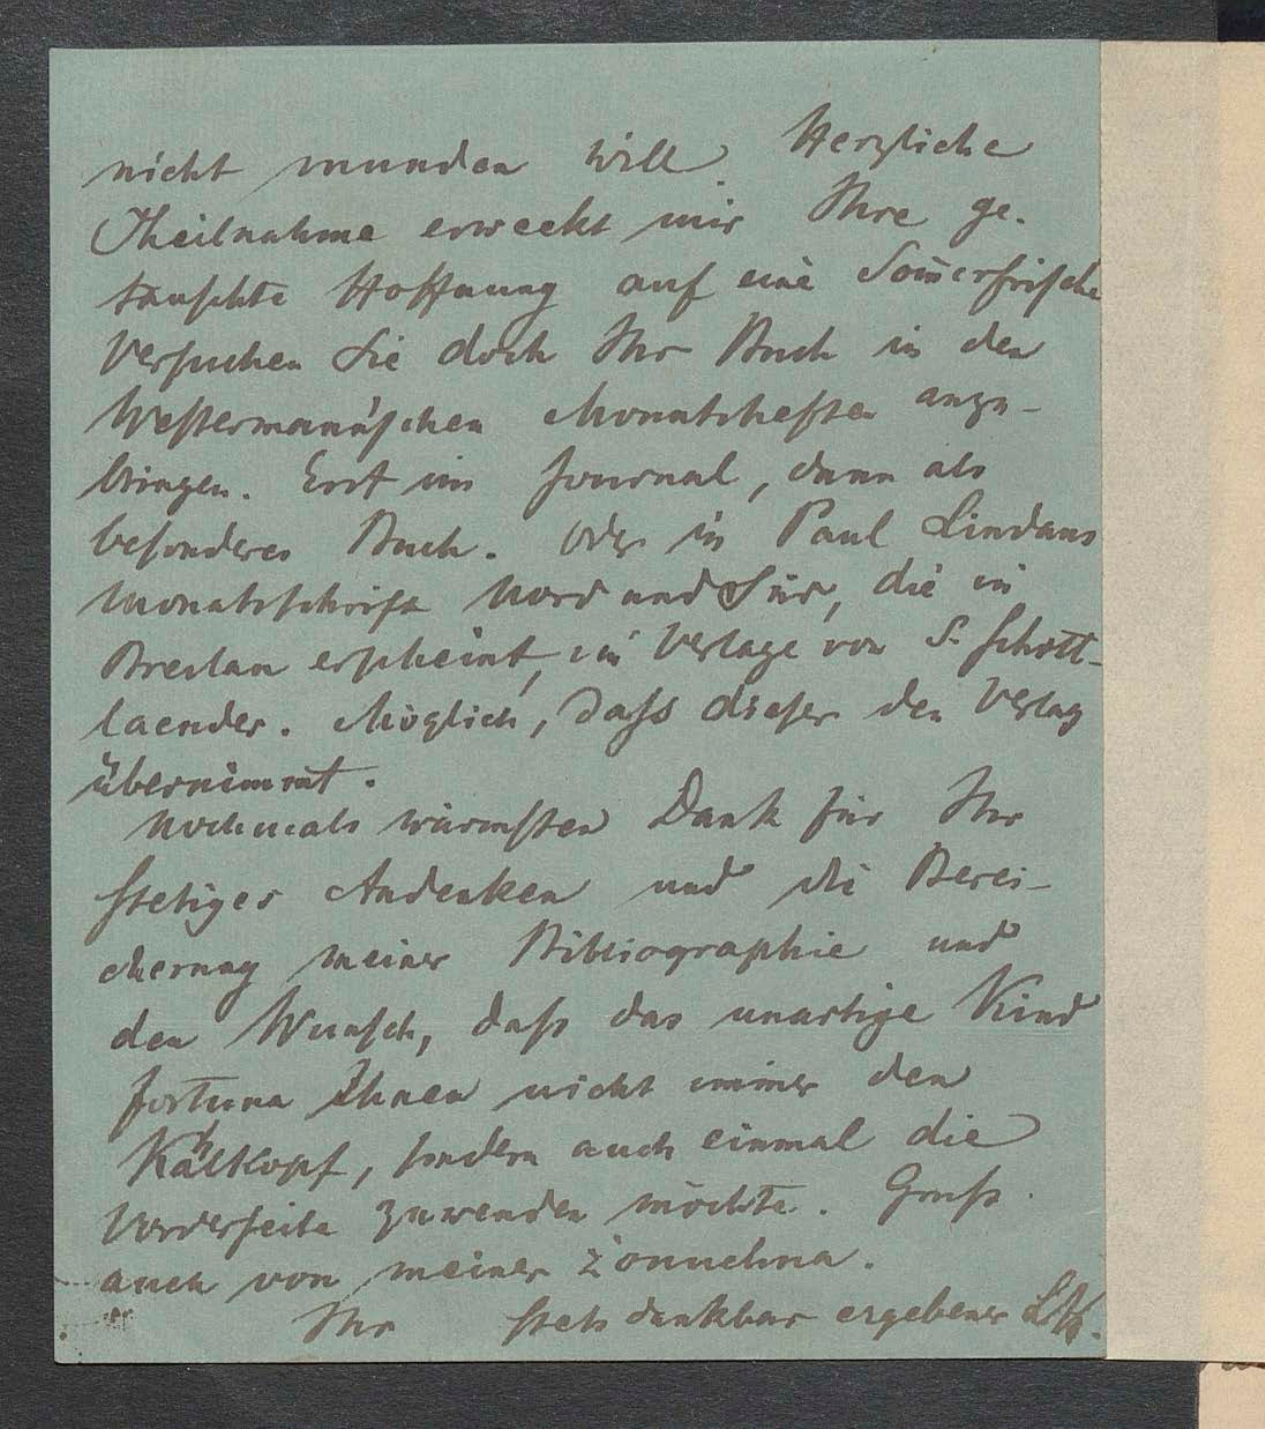 nicht munden will. Herzliche
Theilnahme erweckt mir Ihre ge-
täuschte Hoffnung auf eine Som̄erfrische
Versuchen Sie doch Ihr Buch in den
Westermann'schen Monatsheften anzu-
bringen. Erst im Journal, dann als
besonderes Buch. Oder in Paul Lindaus
Monatsschrift Nord und Süd, die in
Breslau erscheint, im Verlage von S. Schott-
laender. Möglich, dass dieser den Verlag
übernimmt.
Nochmals wärmsten Dank für Ihr
stetiges Andenken und die Berei-
cherung meiner Bibliographie und
den Wunsch, dass das unartige Kind
Fortuna Ihnen nicht immer den
Kahlkopf, sondern auch einmal die
Vorderseite zuwenden möchte. Gruss
auch von meiner
Ihr stets dankbar ergebener